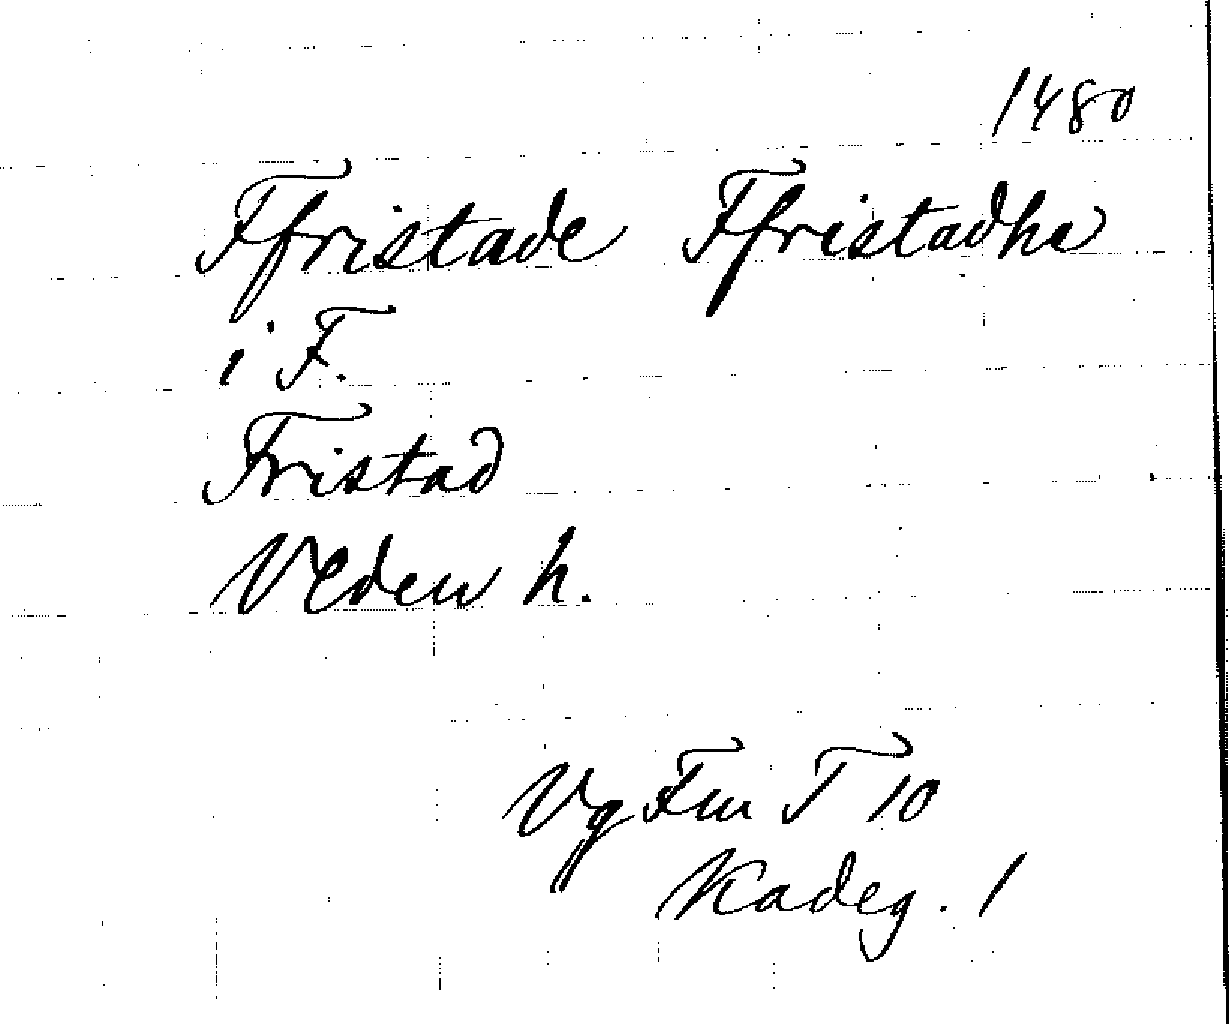 1480
Ffristade Ffristadhe
i F.
Fristad
Veden h.
Vg Fm T 10
Kadeg. 1